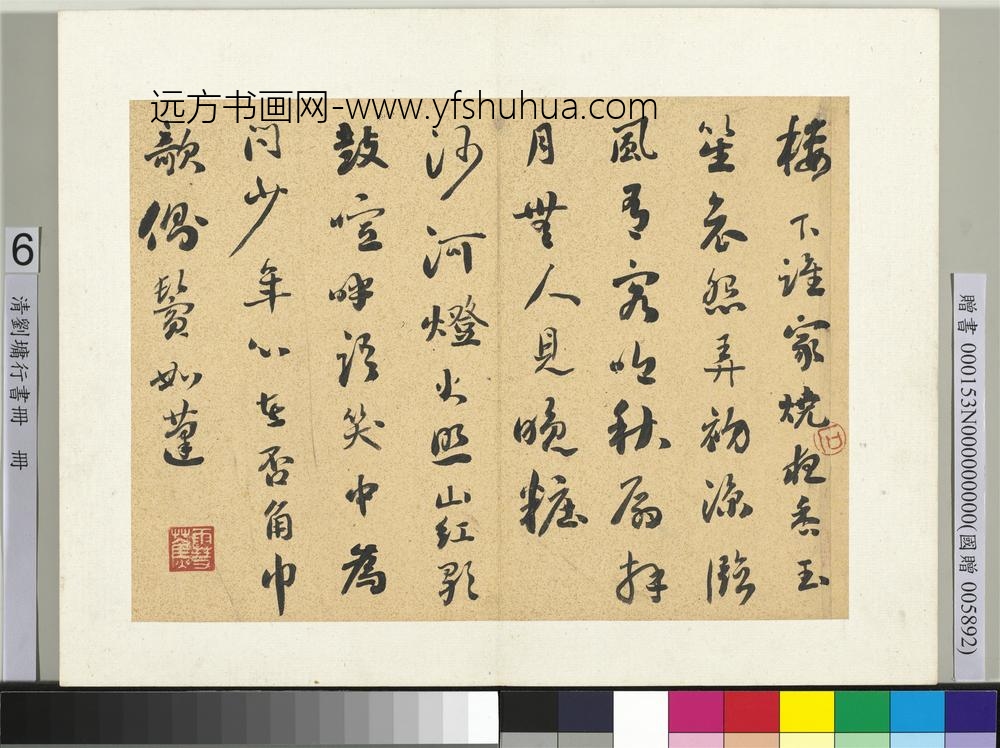 远方书画网-www.yfshuhua.com
樓下誰家燒夜香玉
笙哀怨弄初涼臨
風有客吟秋扇拜
月無人見晚糚
沙河燈火照山紅歌
鼓喧呼語笑中為
問少年心在否角巾
欹側鬢如蓬
6
清劉墉行書冊 冊
贈書 000153N000000000(國贈 005892)